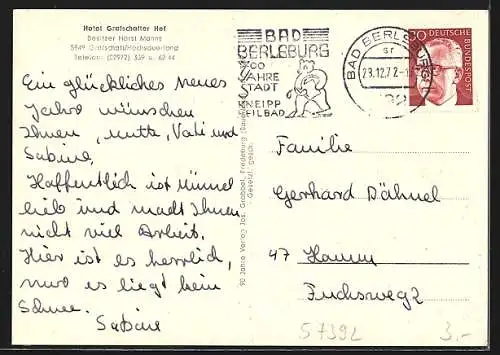 Hotel Grafschafter Hof
Besitzer Horst Manns
5949 Grafschaft/Hochsauerland
Telefon: (02972) 339 u. 62 44
BAD
BERLEBURG
700
JAHRE
STADT
KNEIPP
HEILBAD
BAD BERLEBURG 1
23.12.72
30 DEUTSCHE
BUNDESPOST
Ein glückliches neues
Jahr wünschen
Ihnen, Mutti, Vati und
Sabine.
Hoffentlich ist
lieb und macht Ihnen
nicht viel Arbeit.
Hier ist es herrlich,
nur es liegt kein
Schnee.
Sabine
90 Jahre Verlag Jos. Grobbel, Fredeburg
Gesetzl. gesch.
Familie
Gerhard Dähnel
47 Hamm
Fuchsweg 2
S7392
3,-